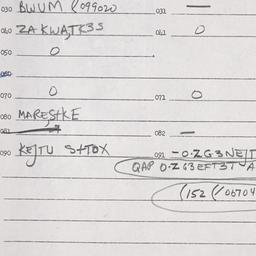 030 BWUM (099020 031 —
040 ZAKWATK3S 041 0
050 0
060
070 0 071 0
080 MARESTKE
081 082 —
090 KEJTU STTOX 091 -0.ZG3NEJT
QAP 0.ZG3EFT3T A
(152 (/06704